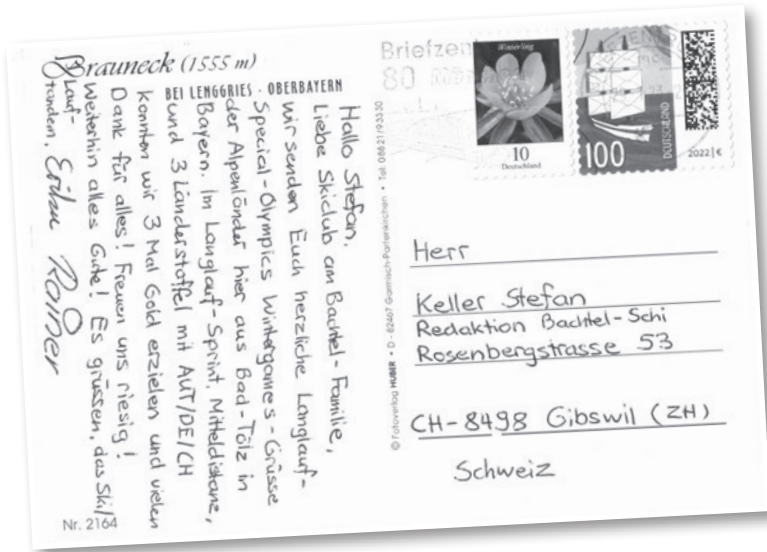 Brauneck (1555 m)
BEI LENGGRIES · OBERBAYERN
Hallo Stefan,
Liebe Skiclub am Bachtel-Familie,
wir senden Euch herzliche Langlauf-
Special-Olympics Wintergames-Grüsse
der Alpenländer hier aus Bad-Tölz in
Bayern. Im Langlauf-Sprint, Mitteldistanz,
und 3 Länderstaffel mit AUT/DE/CH
konnten wir 3 Mal Gold erzielen und vielen
Dank für alles! Freuen uns riesig!
Weiterhin alles Gute! Es grüssen, das Ski/
Lauf-
tandem, Erika Rainer
Nr. 2164
© Fotoverlag HUBER • D - 82467 Garmisch-Partenkirchen • Tel. 08821/93330
Briefzen
80
Winterling
10
Deutschland
100
DEUTSCHLAND
2022 | €
Herr
Keller Stefan
Redaktion Bachtel-Schi
Rosenbergstrasse 53
CH-8498 Gibswil (ZH)
Schweiz